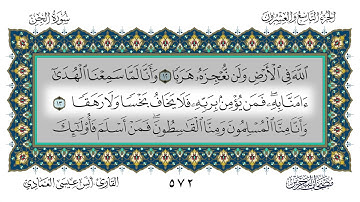 الجزء التاسع والعشرون
سورة الجن
ٱللَّهَ فِى ٱلْأَرْضِ وَلَن نُّعْجِزَهُۥ هَرَبًا ١٢ وَأَنَّا لَمَّا سَمِعْنَا ٱلْهُدَىٰٓ
ءَامَنَّا بِهِۦ ۖ فَمَن يُؤْمِنۢ بِرَبِّهِۦ فَلَا يَخَافُ بَخْسًا وَلَا رَهَقًا ١٣
وَأَنَّا مِنَّا ٱلْمُسْلِمُونَ وَمِنَّا ٱلْقَٰسِطُونَ ۖ فَمَنْ أَسْلَمَ فَأُو۟لَٰٓئِكَ
٥٧٢
القارئ: أنس عيسى العمادي